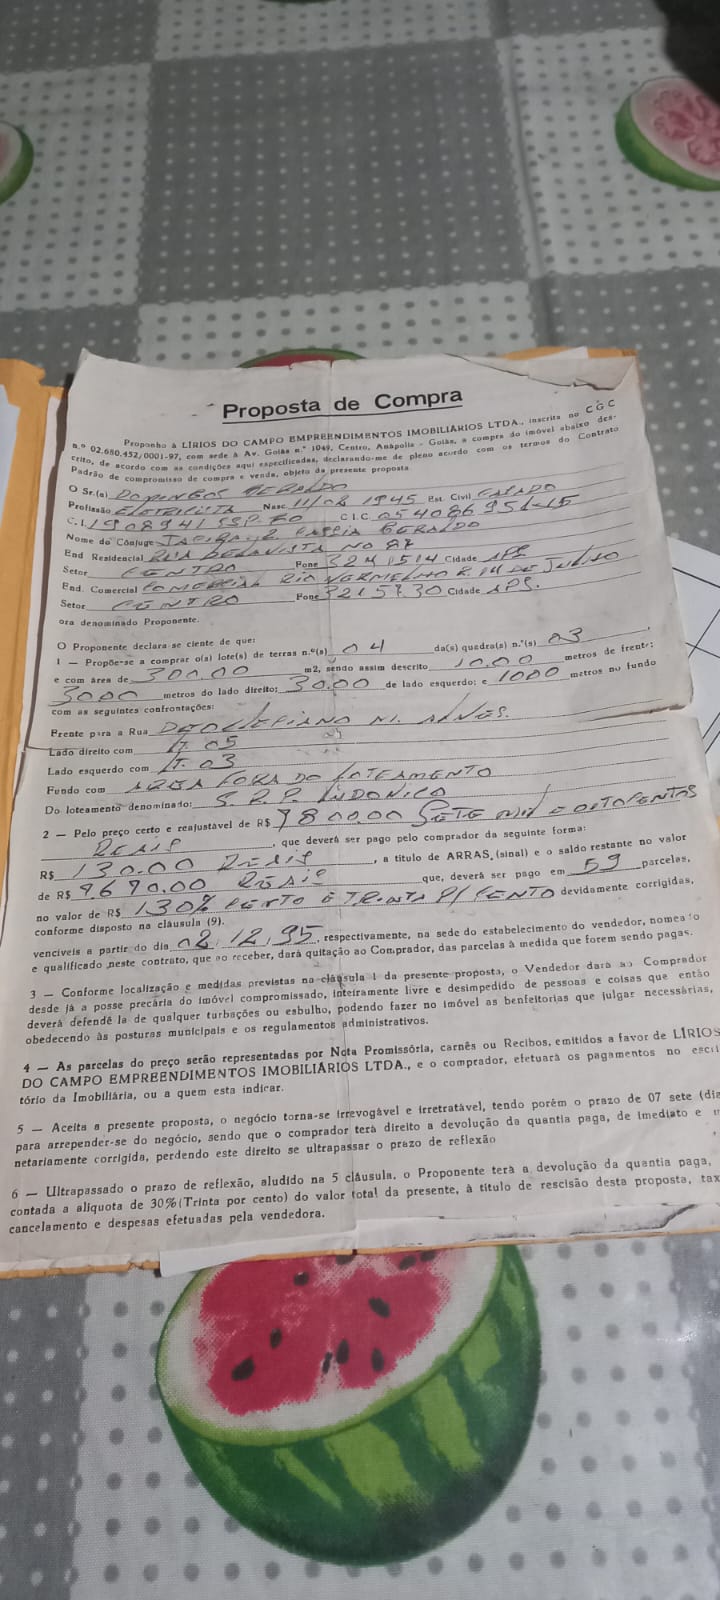 Proposta de Compra
Proponho à LÍRIOS DO CAMPO EMPREENDIMENTOS IMOBILIÁRIOS LTDA., inscrita no CGC
n.º 02.680.452/0001-97, com sede à Av. Goiás n.º 1049, Centro, Anápolis - Goiás, a compra do imóvel abaixo des-
crito, de acordo com as condições aqui especificadas, declarando-me de pleno acordo com os termos do Contrato
Padrão de compromisso de compra e venda, objeto da presente proposta
O Sr.(a) DOMINGOS GERALDO
Profissão ELETRICISTA Nasc. 11/02 1945 Est. Civil CASADO
C.I. 1908941 SSP. C.I.C. 054086951-15
Nome do Cônjuge GERALDO
End Residencial RUA BELAVISTA NO 87
Setor CENTRO Fone 3241514 Cidade APS
End. Comercial COMERCIAL RIO VERMELHO R. 14 DE JULHO
Setor CENTRO Fone 3215730 Cidade APS.
ora denominado Proponente.
O Proponente declara-se ciente de que:
1 — Propõe-se a comprar o(a) lote(s) de terras n.º(s) 04 da(s) quadra(s) n.º(s) 03,
e com área de 300,00 m2, sendo assim descrito 10.00 metros de frente;
3000 metros do lado direito; 30.00 de lado esquerdo; e 1000 metros no fundo
com as seguintes confrontações:
Frente para a Rua M. ALVES.
Lado direito com LT. 05
Lado esquerdo com LT. 03
Fundo com AREA FORA DO LOTEAMENTO
Do loteamento denominado: LUDOVICO
2 — Pelo preço certo e reajustável de R$ 7800.00 SETE MIL E OITOCENTOS
REAIS, que deverá ser pago pelo comprador da seguinte forma:
R$ 130.00 REAIS, a título de ARRAS, (sinal) e o saldo restante no valor
de R$ 9.670.00 REAIS que, deverá ser pago em 59 parcelas,
no valor de R$ 130% CENTO E TRINTA P/ CENTO devidamente corrigidas,
conforme disposto na cláusula (9).
vencíveis a partir do dia 02,12,95, respectivamente, na sede do estabelecimento do vendedor, nomeado
e qualificado neste contrato, que ao receber, dará quitação ao Comprador, das parcelas à medida que forem sendo pagas.
3 — Conforme localização e medidas previstas na cláusula 1 da presente proposta, o Vendedor dará ao Comprador
desde já a posse precária do imóvel compromissado, inteiramente livre e desimpedido de pessoas e coisas que então
deverá defendê la de qualquer turbações ou esbulho, podendo fazer no imóvel as benfeitorias que julgar necessárias,
obedecendo às posturas municipais e os regulamentos administrativos.
4 — As parcelas do preço serão representadas por Nota Promissória, carnês ou Recibos, emitidos a favor de LÍRIOS
DO CAMPO EMPREENDIMENTOS IMOBILIÁRIOS LTDA., e o comprador, efetuará os pagamentos no escri
tório da Imobiliária, ou a quem esta indicar.
5 — Aceita a presente proposta, o negócio torna-se irrevogável e irretratável, tendo porém o prazo de 07 sete (dia
para arrepender-se do negócio, sendo que o comprador terá direito a devolução da quantia paga, de imediato e
netariamente corrigida, perdendo este direito se ultrapassar o prazo de reflexão
6 — Ultrapassado o prazo de reflexão, aludido na 5 cláusula, o Proponente terá a devolução da quantia paga,
contada a alíquota de 30% (Trinta por cento) do valor total da presente, à título de rescisão desta proposta, tax
cancelamento e despesas efetuadas pela vendedora.